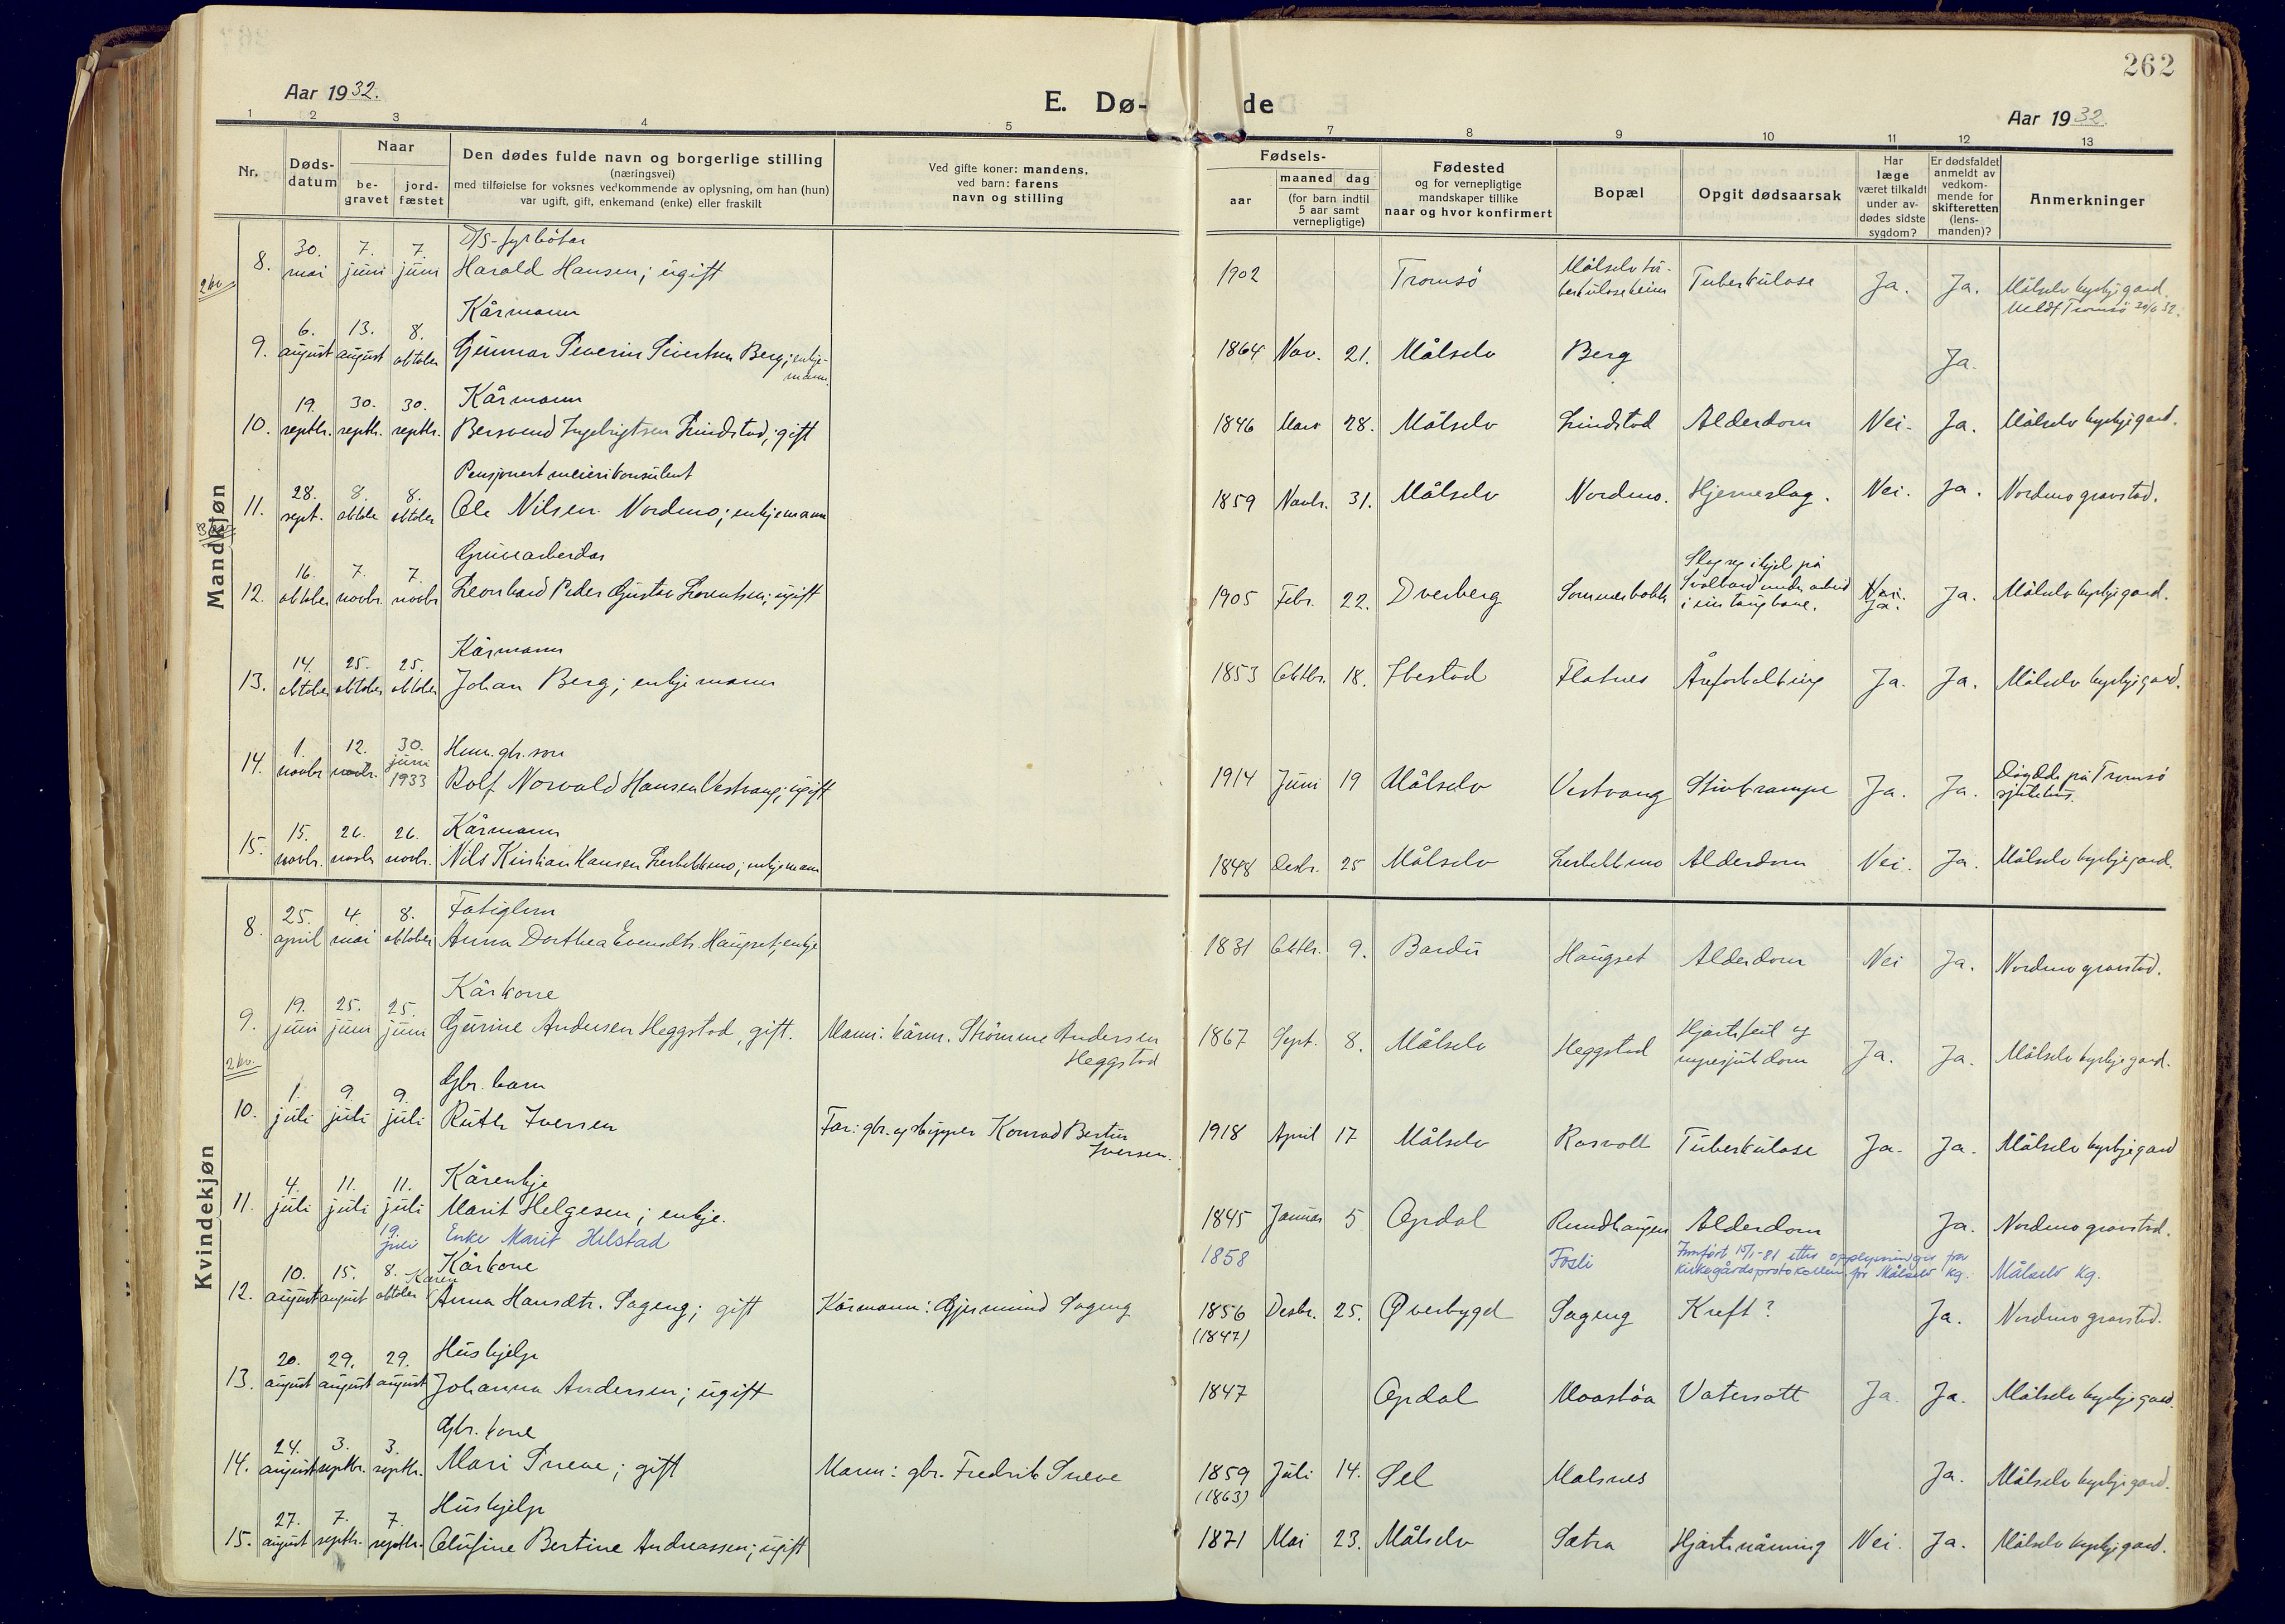 262
Aar 1932.
E. Dø-de
Aar 1932.
1 2 3 4 5 7 8 9 10 11 12 13
Nr.
Døds-
datum
Naar
be-
gravet
jord-
fæstet
Den dødes fulde navn og borgerlige stilling
(næringsvei)
med tilføielse for voksnes vedkommende av oplysning, om han (hun)
var ugift, gift, enkemand (enke) eller fraskilt
Ved gifte koner: mandens,
ved barn: farens
navn og stilling
Fødsels-
aar
maaned dag
(for barn indtil
5 aar samt
vernepligtige)
Fødested
og for vernepligtige
mandskaper tillike
naar og hvor konfirmert
Bopæl
Opgit dødsaarsak
Har
læge
været tilkaldt
under av-
dødes sidste
sygdom?
Er dødsfaldet
anmeldt av
vedkom-
mende for
skifteretten
(lens-
manden)?
Anmerkninger
Mandkjøn
D/S-fyrbøtar
8. 30. mai 7. juni 7. juni Harald Hansen; ugift 1902 Tromsø Målselv tu-
berkuloseheim Tuberkulose Ja. Ja. Målselv kyrkjegard.
Meldt Tromsø
Kårmann
9. 6. august 13. august 8. oktober Gunnar Severin Sivertsen Berg; enkje-
mann. 1864 Nov. 21. Målselv Berg Ja.
Kårmann
10. 19. septbr. 30. septbr. 30. septbr. Bersvend Ingebrigtsen Lindstad; gift 1846 Mars 28. Målselv Lindstad Alderdom Nei. Ja. Målselv kyrkjegard.
Pensjonert meierikonsulent
11. 28. sept. 8. oktober 8. oktober Ole Nilsen Nordmo; enkjemann 1859 Novbr. 31. Målselv Nordmo. Hjerneslag. Nei. Ja. Nordmo gravstad.
Gruvearbeidar
12. 16. oktober 7. novbr. 7. novbr Leonhard Peder Gustav Lorentsen; ugift 1905 Febr. 22. Dverberg Sommerbakk Slog seg ihjel på
Svalbard under arbeid
i ein taugbane. Nei.
Ja. Ja. Målselv kyrkjegard.
Kårmann
13. 14. oktober 25. oktober 25. oktober Johan Berg; enkjemann 1853 Oktbr. 18. Ibestad Flatnes Åreforkalking Ja. Ja. Målselv kyrkjegard.
Hm. gbr. son
14. 1. novbr 12. novbr. 30. juni 1933 Rolf Norvald Hansen Vestvang; ugift 1914 Juni 19 Målselv Vestvang Stivkrampe Ja. Ja. Døydde på Tromsø
sjukehus.
Kårmann
15. 15. novbr. 26. novbr 26. novbr. Nils Kristian Hansen enkjemann 1848 Desbr. 25 Målselv Alderdom Nei. Ja. Målselv kyrkjegard.
Kvindekjøn
Fatiglem
8. 25. april 4. mai 8. oktober Anna Dorthea Evensdtr. Haugset; enkje 1831 Oktbr. 9. Bardu Haugset Alderdom Nei Ja. Nordmo gravstad.
Kårkone
9. 19. juni 25. juni 25. juni Gurine Andersen Heggstad, gift. Mann: kårm. Strømme Andersen
Heggstad 1867 Sept. 8. Målselv Heggstad Hjartefeil og
nyresjukdom Ja. Ja. Målselv kyrkjegard.
Gbr. barn
10. 1. juli 9. juli 9. juli Ruth Iversen Far: gbr. og skipper Konrad Bertin
Iversen. 1918 April 17 Målselv Rosvoll Tuberkulose Ja. Ja. Målselv kyrkjegard
Kårenkje
11. 4. juli 11. juli 11. juli Marit Helgesen; enkje. 1845 Januar 5 Opdal Rundhaugen Alderdom Ja. Nordmo gravstad.
19. juli Enke Marit Helstad 1858 Fosli Innført 15/1-81 etter opplysninger fra
kirkegårdsprotokollen for Målselv kg. Målselv kg.
Kårkone
12. 10. august 15. august 8. oktober Karen
Anna Hansdtr. Sageng; gift Kårmann: Gjermund Sageng 1856
(1847) Desbr. 25. Øverbygd Sageng Kreft? Ja. Nordmo gravstad.
Hushjelp
13. 20. august 29. august 29. august Johanna Andersen; ugift 1847 Opdal Moastøa Vatersott Ja. Ja. Målselv kyrkjegard.
Gbr. kone
14. 24. august 3. septbr. 3. septbr. Mari Sneve; gift Mann: gbr. Fredrik Sneve 1859
(1863) Juli 14. Sel Malsnes Ja. Målselv kyrkjegard.
Hushjelp
15. 27. august 7. septbr. 7. septbr. Olufine Bertine Andreassen; ugift 1871 Mai 23. Målselv Sætra Hjartelamming Nei. Ja. Målselv kyrkjegard.